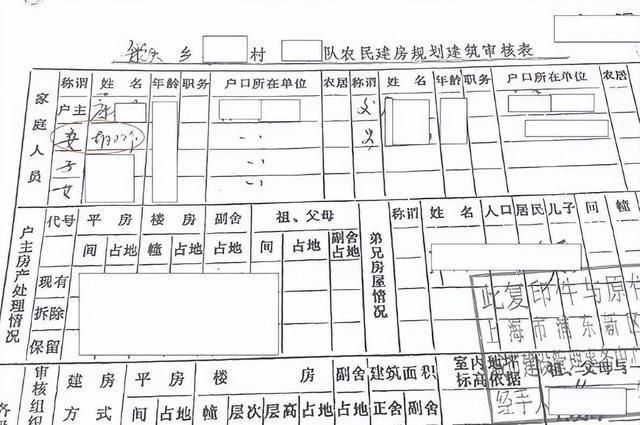 乡 村 队农民建房规划建筑审核表
家庭人员 称谓 姓名 年龄 职务 户口所在单位 农居 称谓 姓名 年龄 职务 户口所在单位 农居
户主 父
妻 父
子
女
户主房产处理情况 代号 平房 楼房 副舍 祖、父母 弟兄房屋情况 称谓 姓名 人口 居民 儿子 间 幢
间 占地 幢 占地 间 占地 间 占地 副舍占地
现有
拆除
保留
此复印件与原件
上海市浦东新
经手人
审核组织 建房方式 平房 楼房 副舍 建筑面积 室内地坪标高依据 祖、父母与
间 占地 幢 层次 层高 占地 占地 正舍 副舍